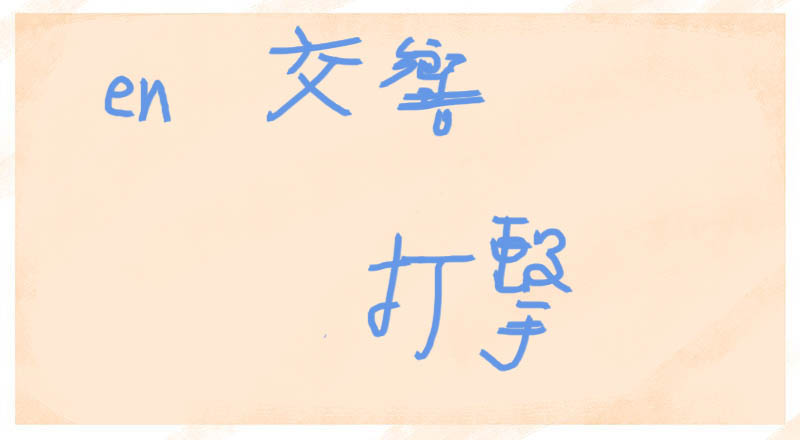 en 交響
打擊